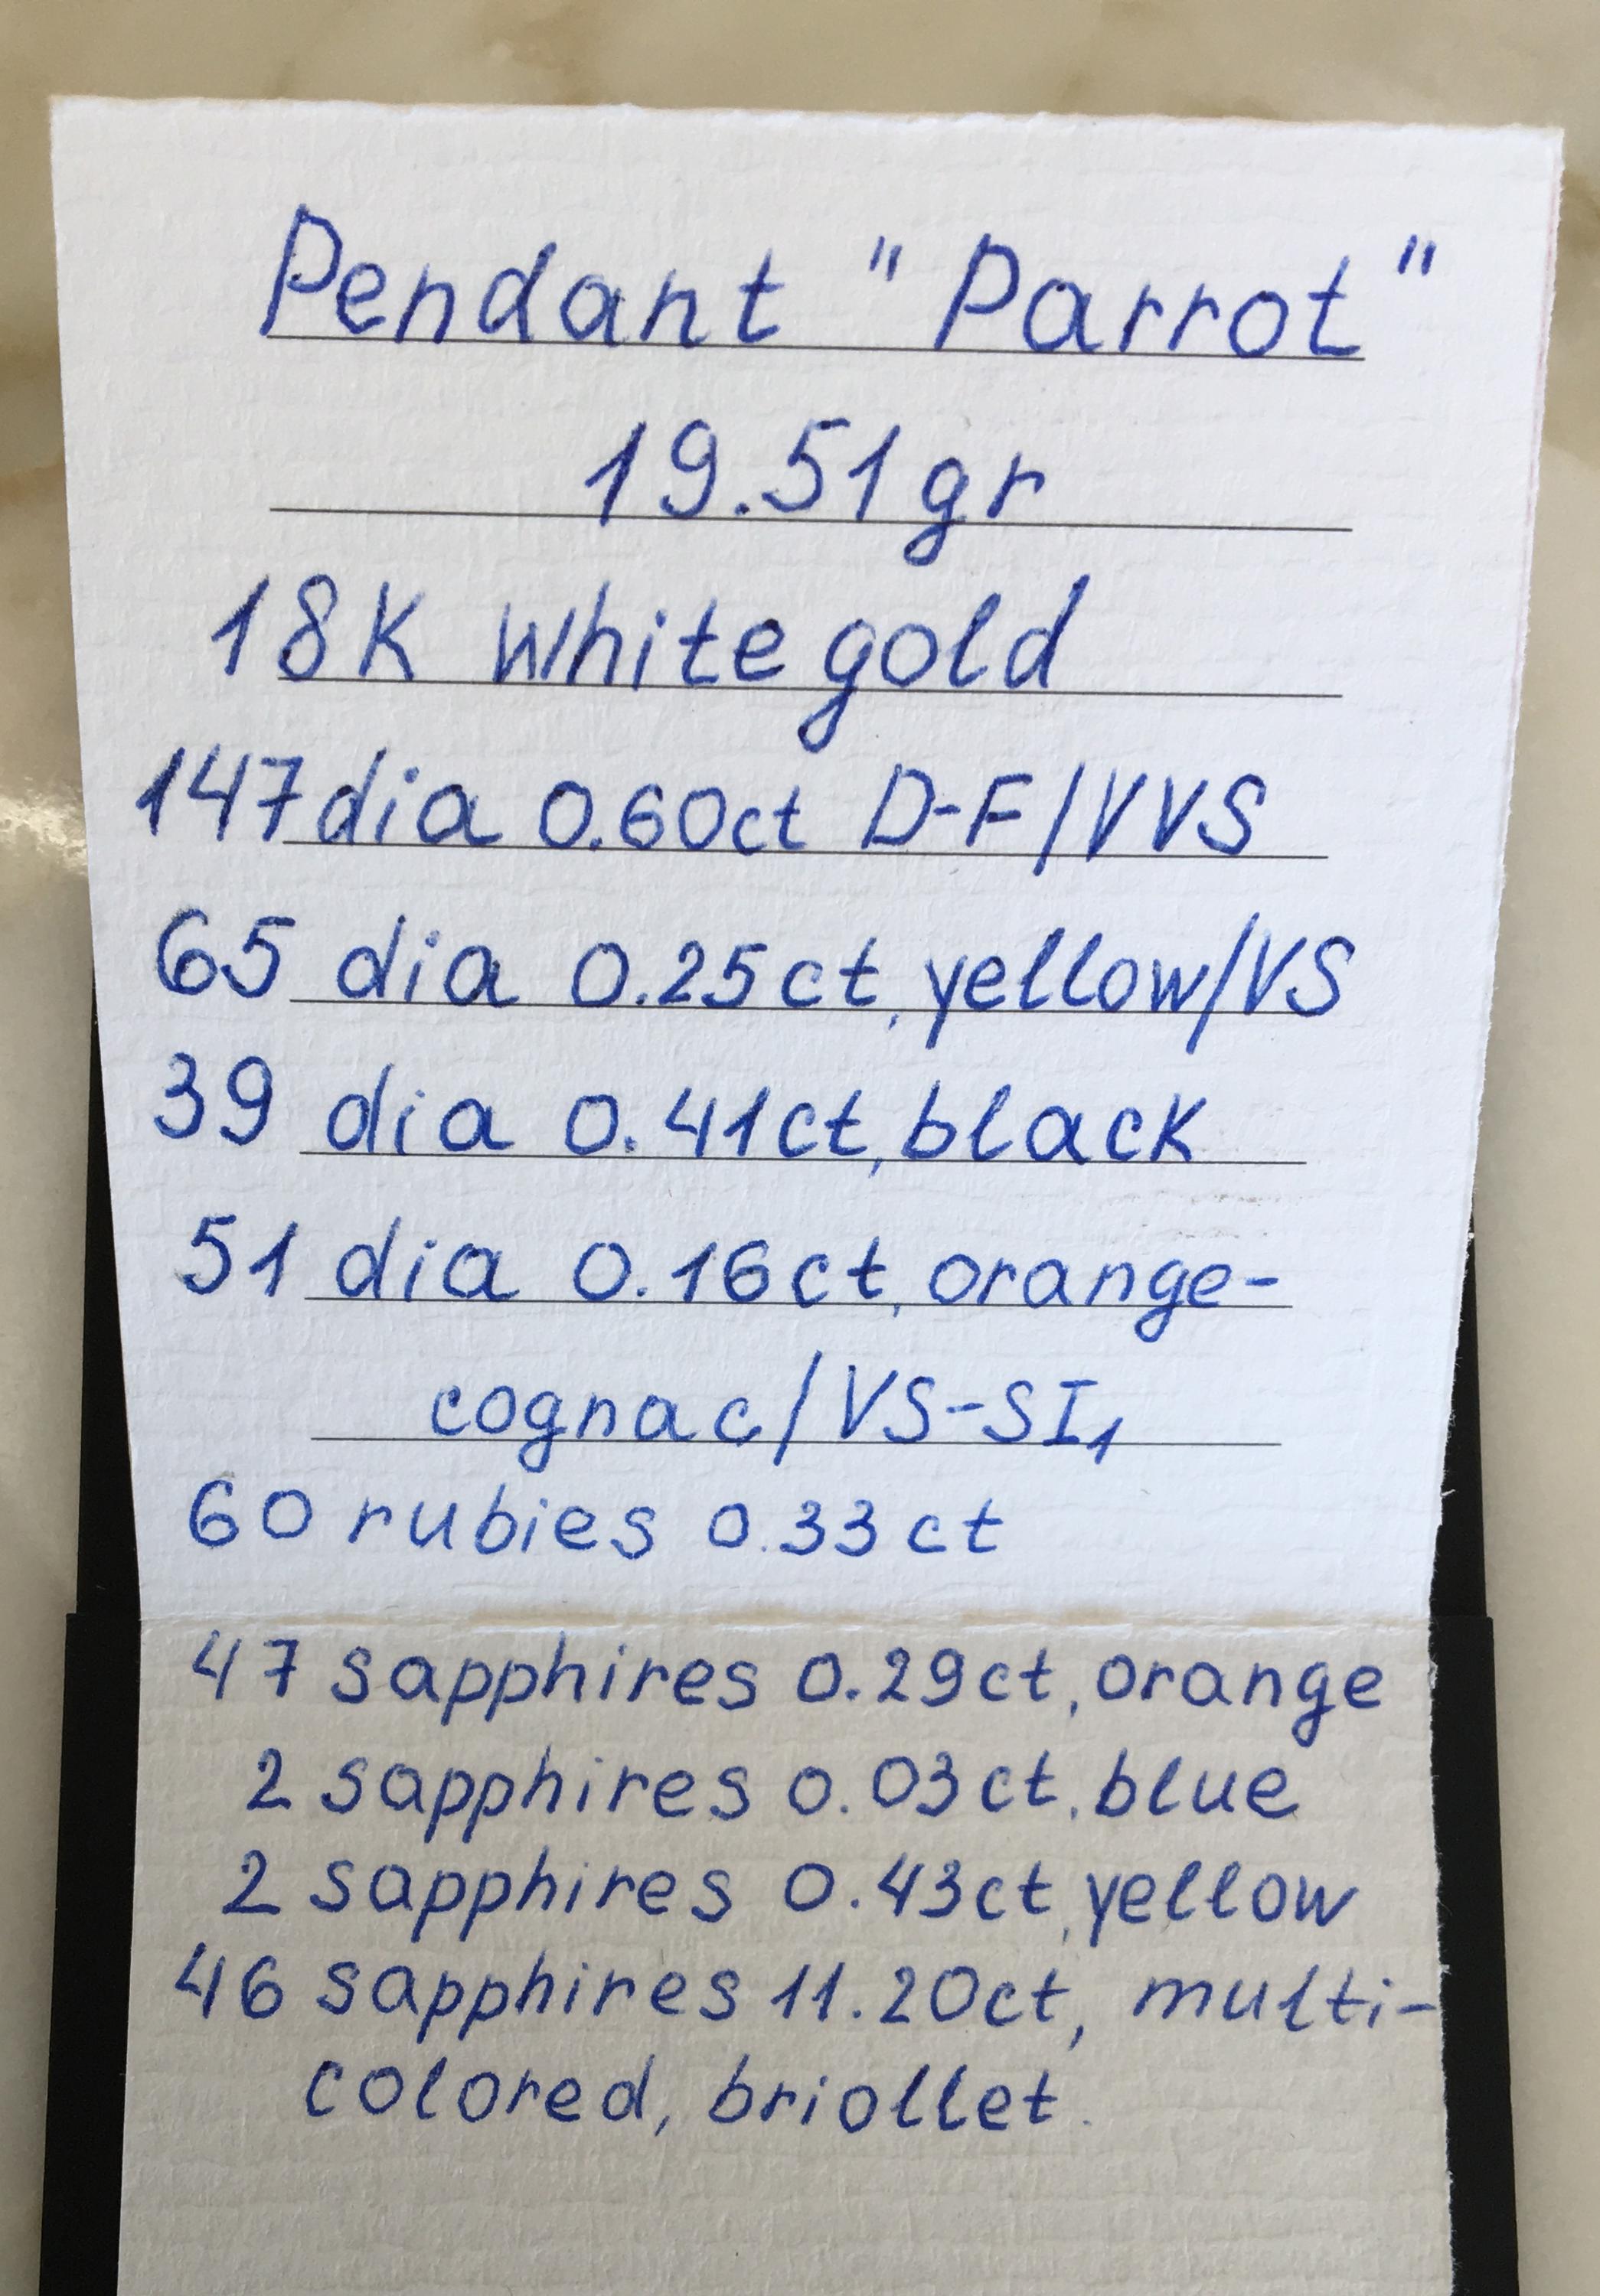 Pendant "Parrot"
19.51 gr
18K white gold
147 dia 0.60ct D-F/VVS
65 dia 0.25ct, yellow/VS
39 dia 0.41ct, black
51 dia 0.16ct, orange-
cognac/VS-SI₁
60 rubies 0.33ct
47 sapphires 0.29ct, orange
2 sapphires 0.03ct, blue
2 sapphires 0.43ct, yellow
46 sapphires 11.20ct, multi-
colored, briollet.